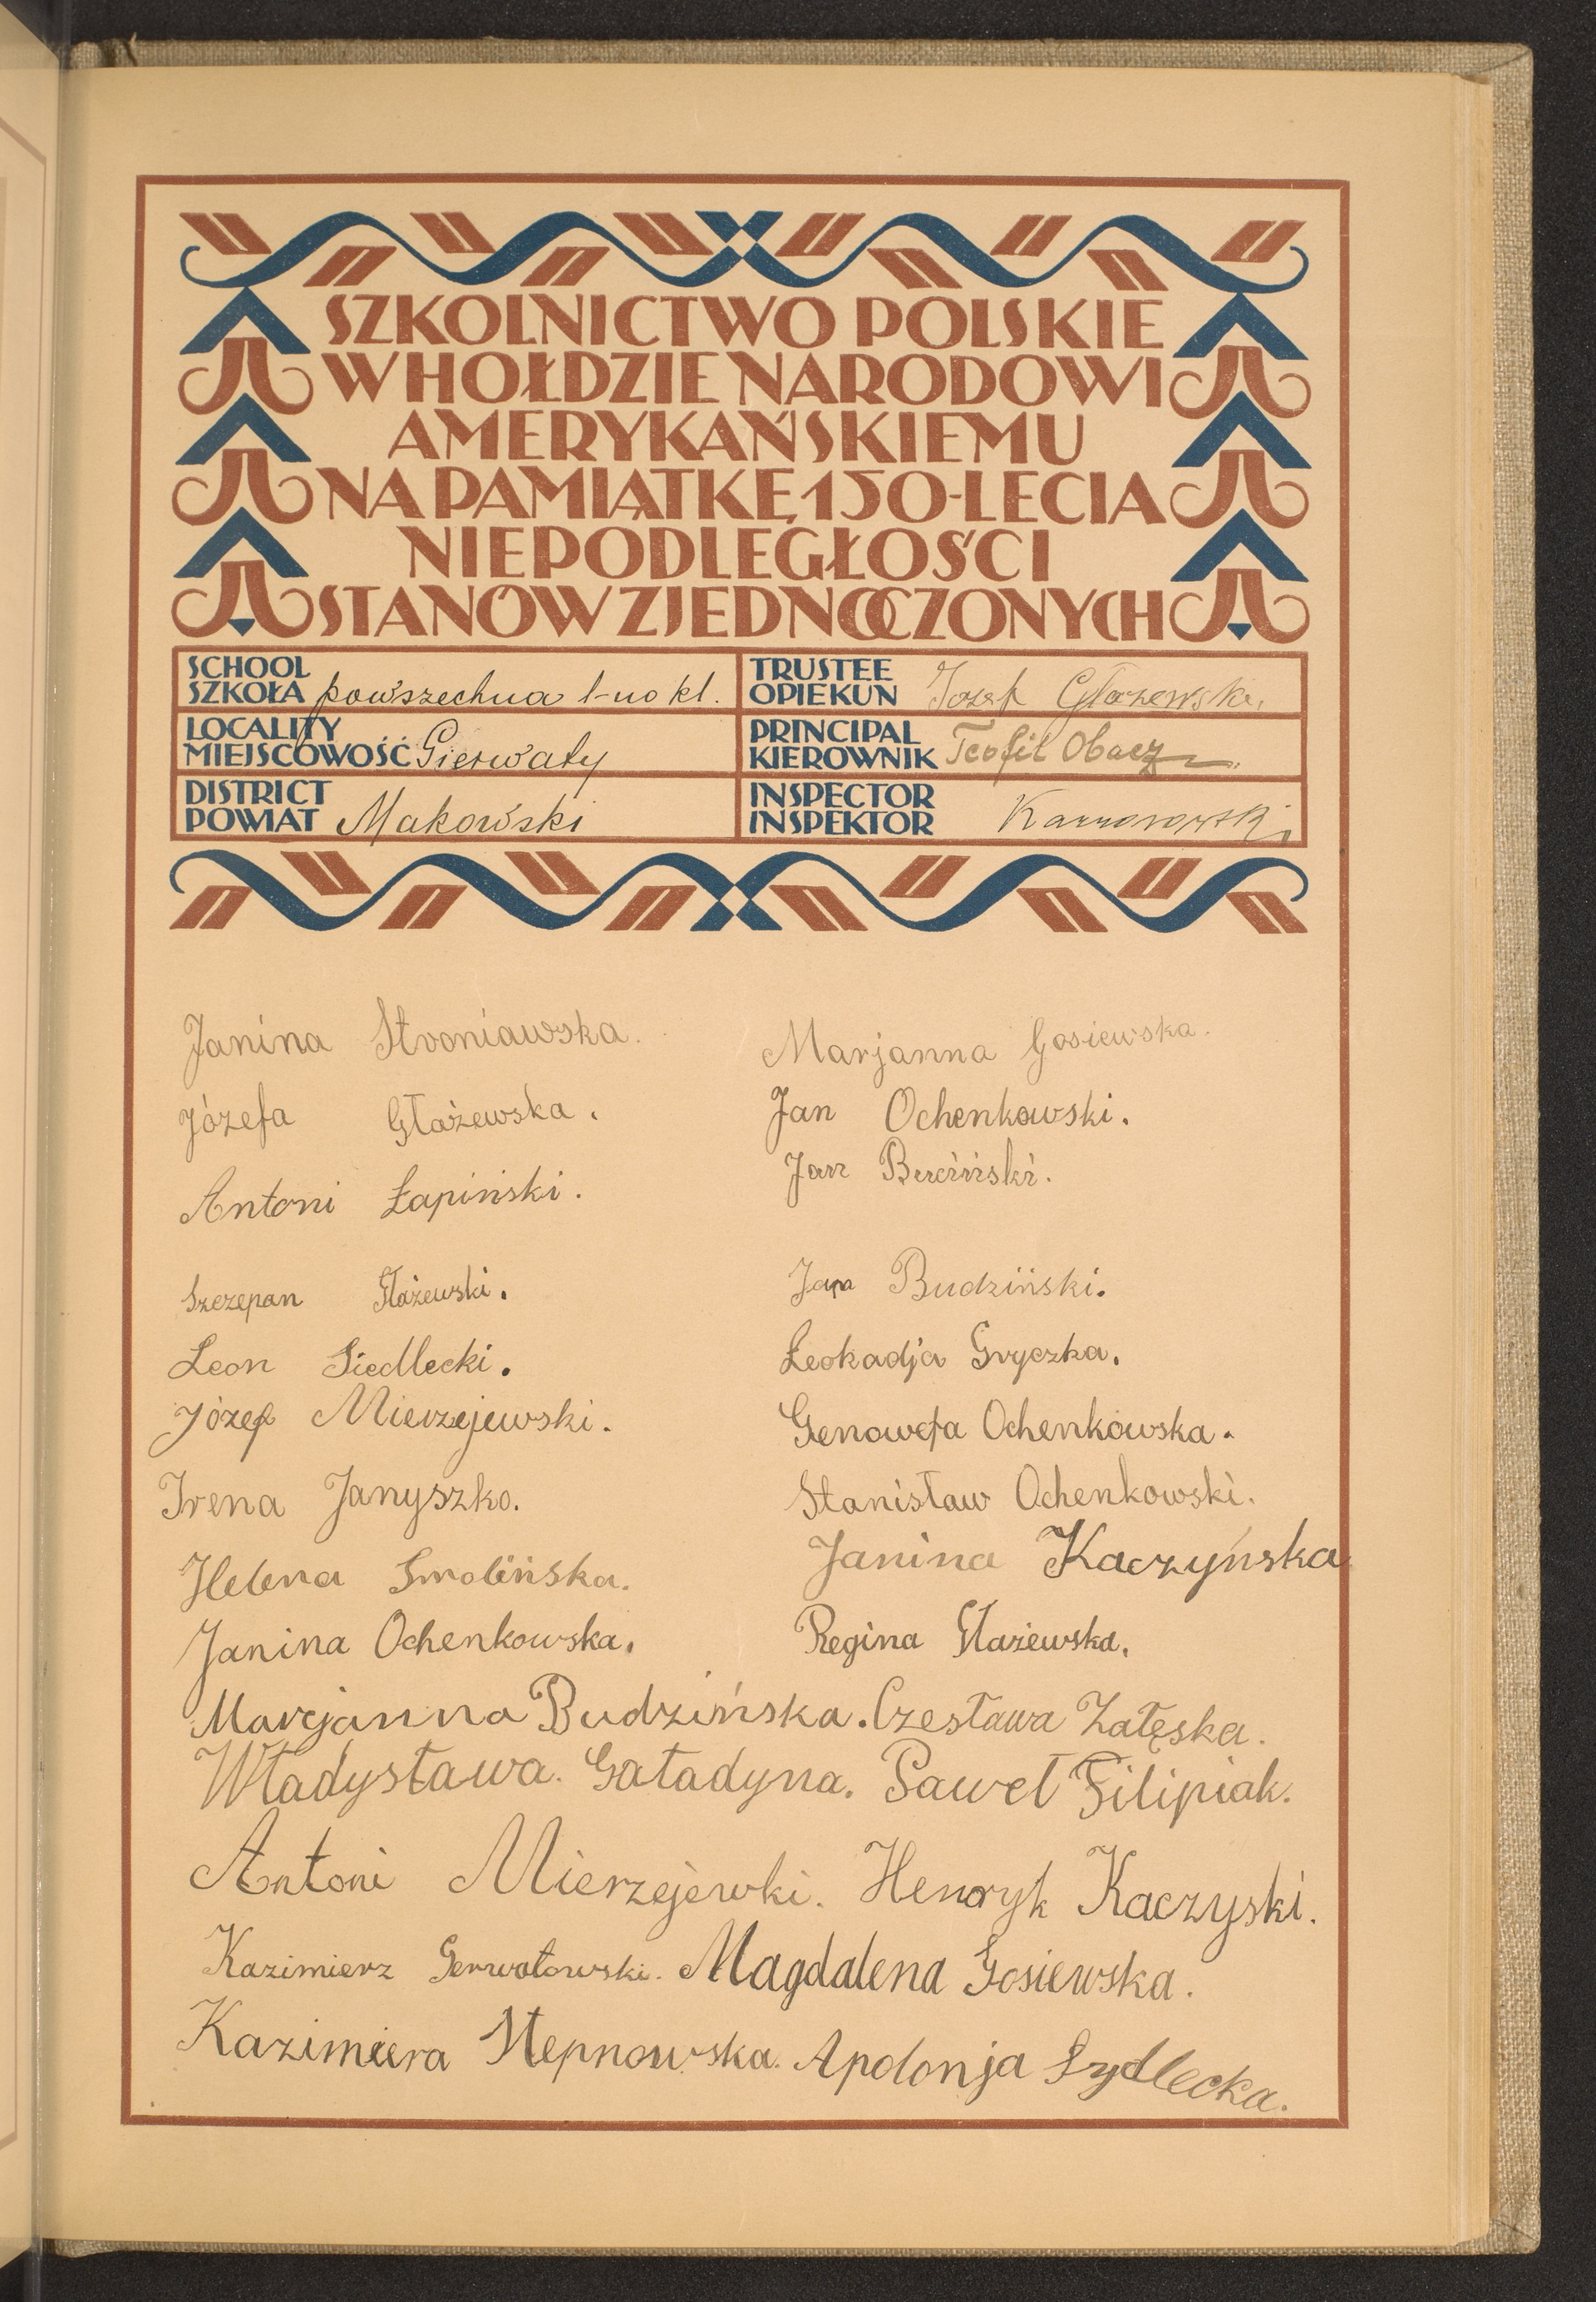 SZKOLNICTWO POLSKIE
W HOŁDZIE NARODOWI
AMERYKAŃSKIEMU
NA PAMIĄTKĘ 150-LECIA
NIEPODLEGŁOŚCI
STANÓW ZJEDNOCZONYCH
SCHOOL
SZKOŁA powszechna 1-no kl.
TRUSTEE
OPIEKUN Józef Głażewski,
LOCALITY
MIEJSCOWOŚĆ Gierwaty
PRINCIPAL
KIEROWNIK Teofil Obacz
DISTRICT
POWIAT Makowski
INSPECTOR
INSPEKTOR
Janina Stroniawska. Marjanna Gosiewska.
Józefa Głażewska. Jan Ochenkowski.
Antoni Łapiński. Jan
Szczepan Głażewski. Jan Budziński.
Leon Siedlecki. Leokadja Gryczka.
Józef Mierzejewski. Genowefa Ochenkowska.
Irena Januszko. Stanisław Ochenkowski.
Helena Smolińska. Janina Kaczyńska
Janina Ochenkowska. Regina Głażewska.
Marjanna Budzińska. Czesława Załęska.
Władysława. Gaładyna. Paweł Filipiak.
Antoni Mierzejewki. Henryk Kaczyski.
Kazimierz Gerwatowski. Magdalena Gosiewska.
Kazimiera Stepnowska. Apolonja Sydlecka.